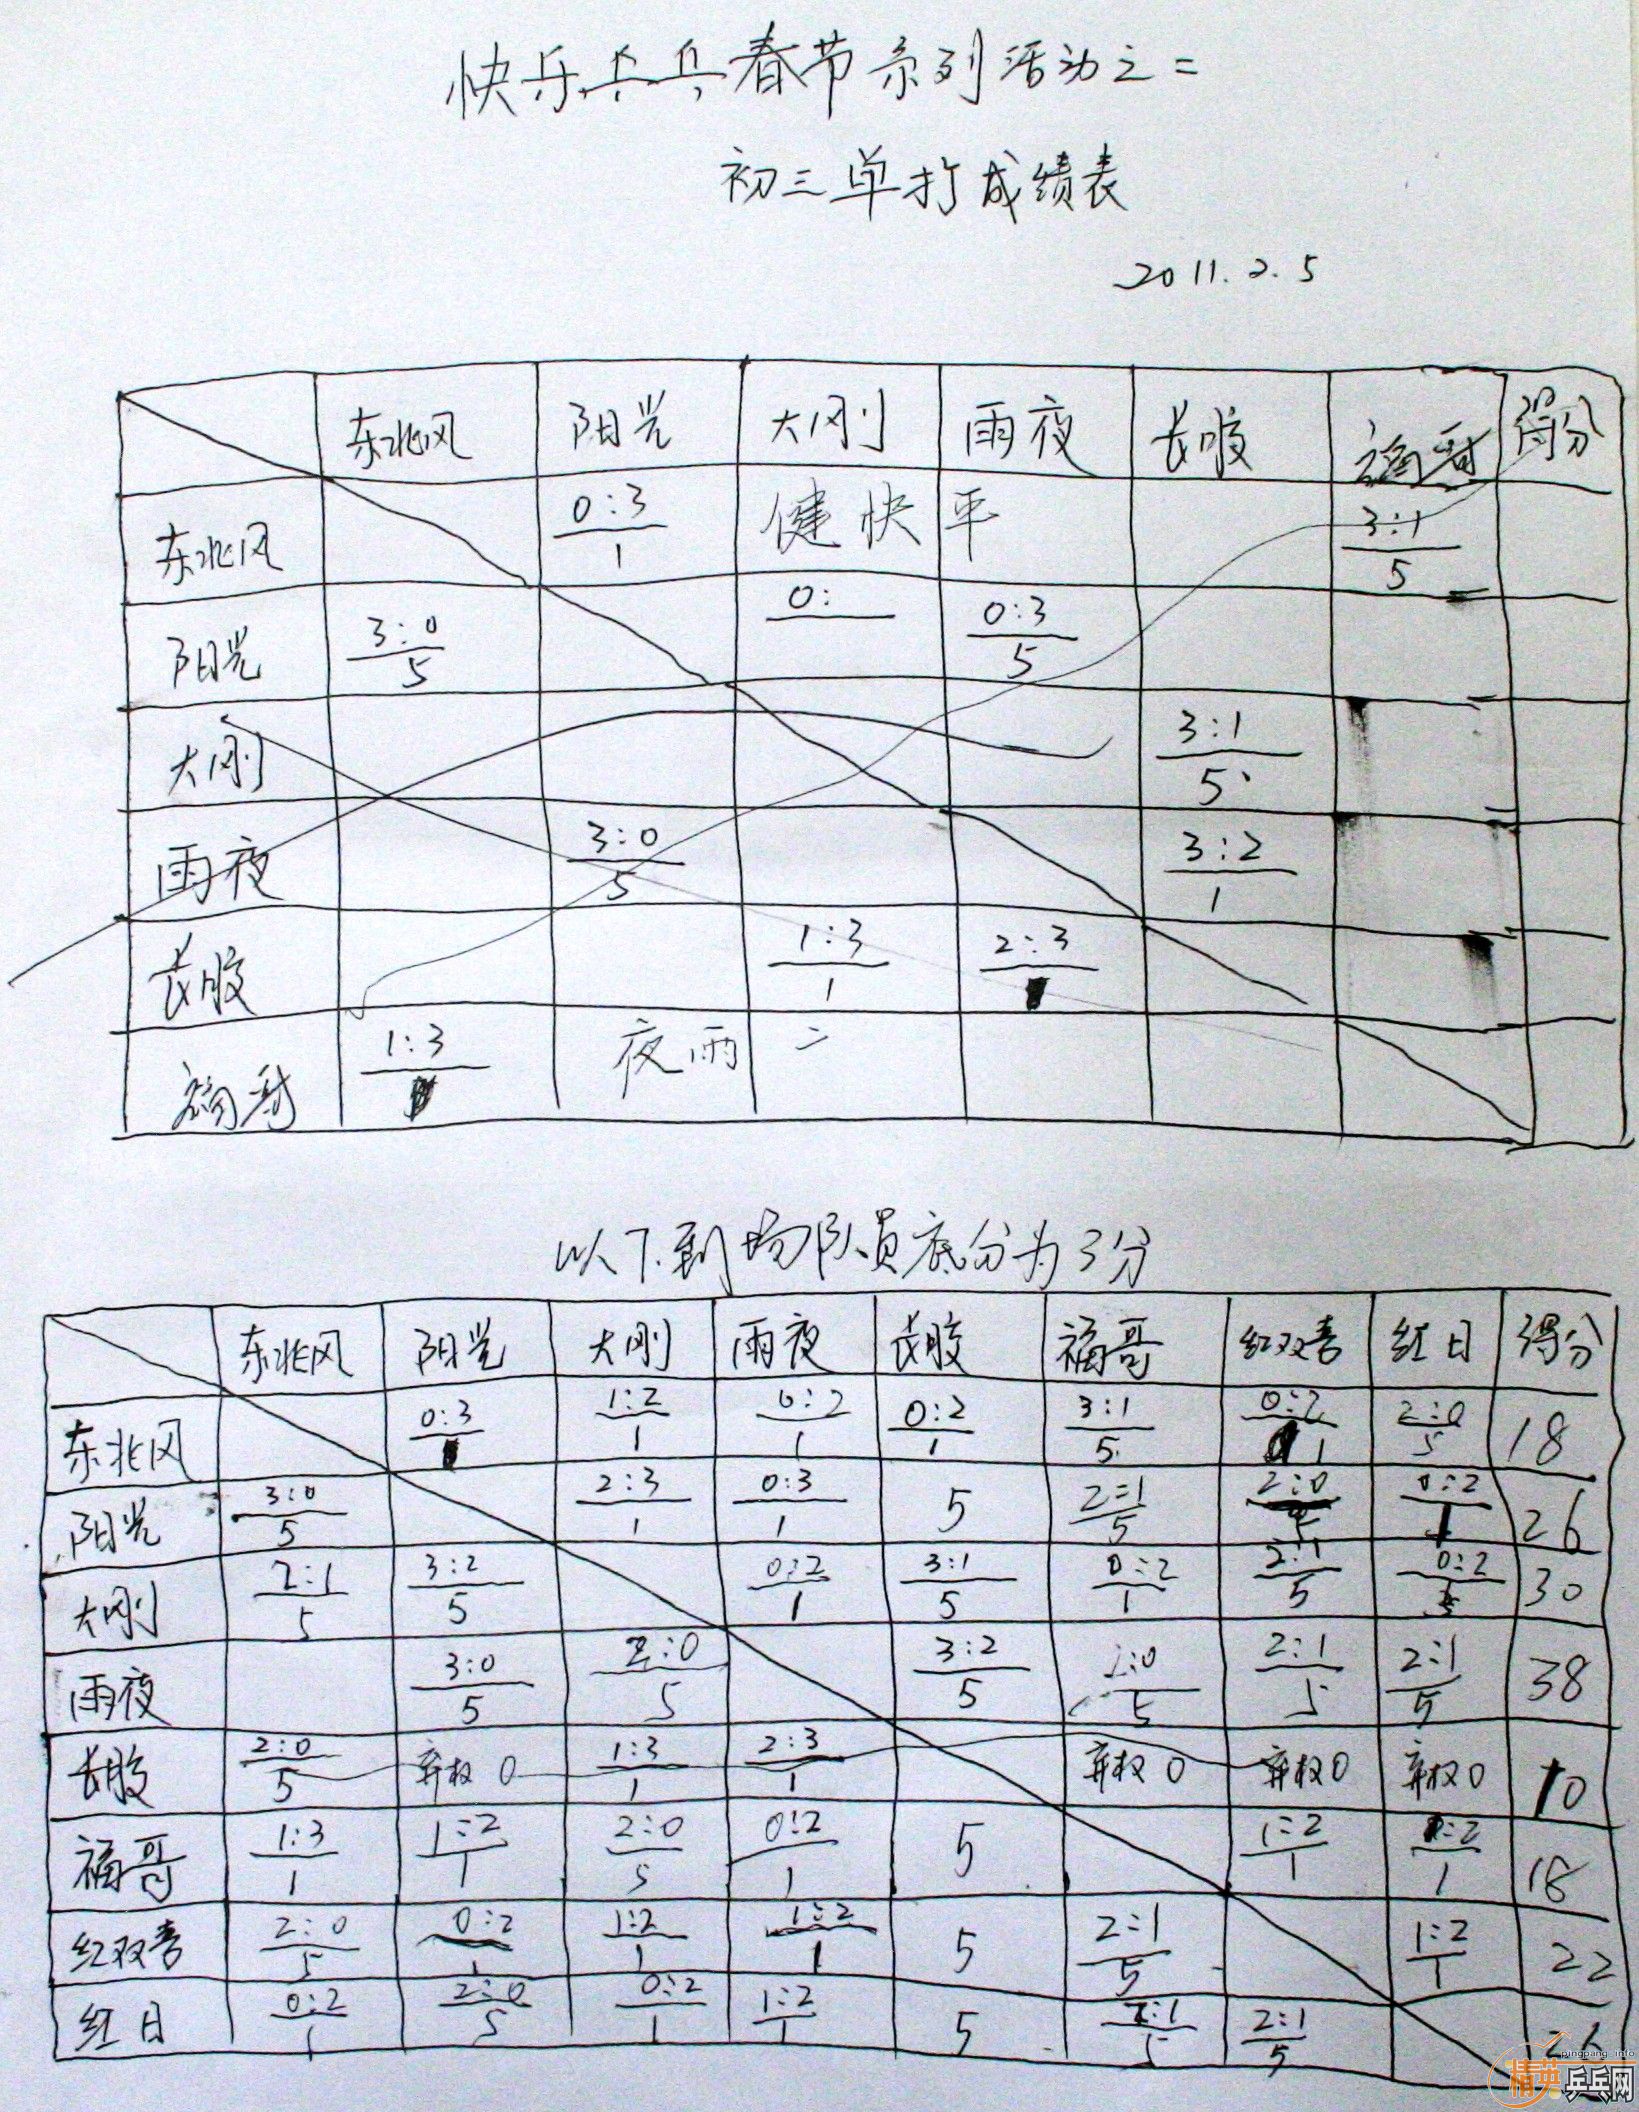 快乐乒乓春节系列活动之二
初三单打成绩表
2011.2.5
东北风 阳光 大刚 雨夜 长胶 福哥 得分
东北风 0:3 1 健 快 平 3:1 5
阳光 3:0 5 0: 0:3 5
大刚 3:1 5
雨夜 3:0 5 3:2 1
长胶 1:3 1 2:3
福哥 1:3 夜雨
以下到场队员底分为3分
东北风 阳光 大刚 雨夜 长胶 福哥 红双喜 红日 得分
东北风 0:3 1 1:2 1 0:2 1 0:2 1 3:1 5 0:2 1 2:0 5 18
阳光 3:0 5 2:3 1 0:3 1 5 2:1 5 2:0 5 0:2 1 26
大刚 2:1 5 3:2 5 0:2 1 3:1 5 0:2 1 2:1 5 0:2 30
雨夜 3:0 5 2:0 5 3:2 5 2:0 5 2:1 5 2:1 5 38
长胶 2:0 5 弃权0 1:3 1 2:3 1 弃权0 弃权0 弃权0 10
福哥 1:3 1 1:2 1 2:0 5 0:2 1 5 1:2 1 1:2 1 18
红双喜 2:0 5 0:2 1 1:2 1 1:2 1 5 2:1 5 1:2 1 22
红日 0:2 1 2:0 5 0:2 1 1:2 1 5 2:1 5 2:1 5 26
pingpang.info
精英乒乓网